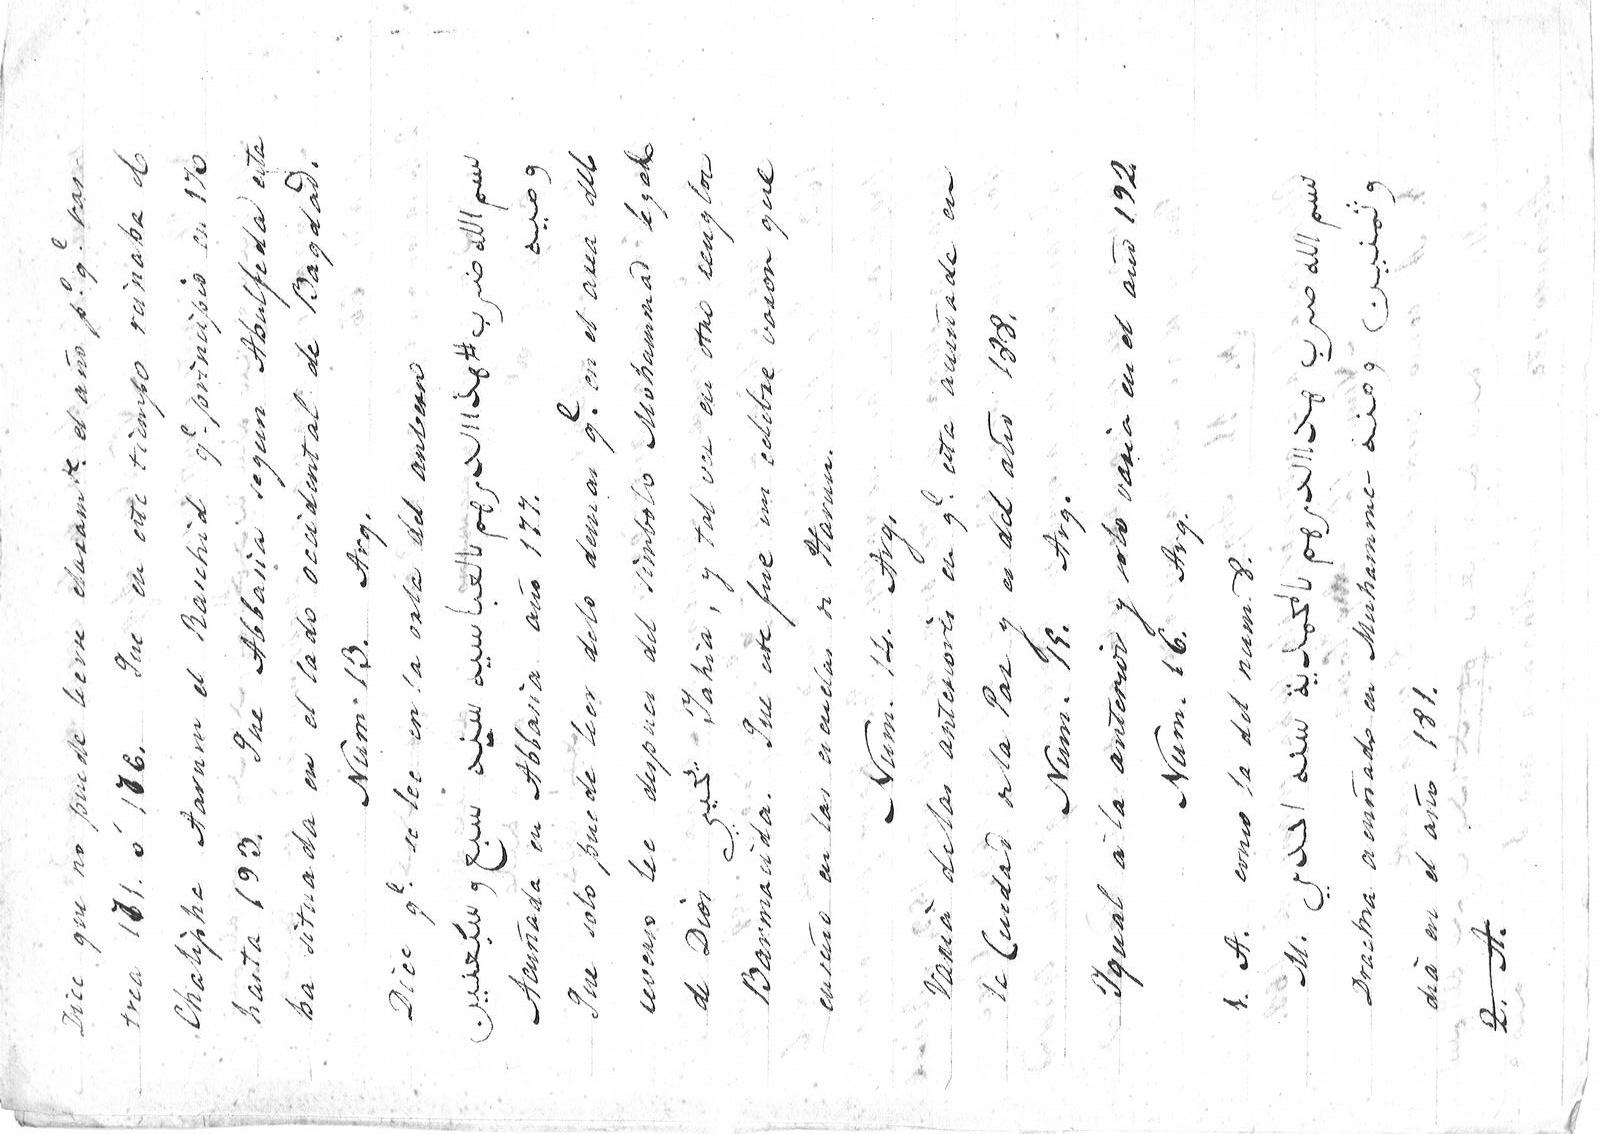 Dice que no puede leerse claramte. el año p.º q.e ras-
trea 171. ó 176. Que en este tiempo reinaba el
Chaliphe Aarunn el Raschid q.e principio en 170
hasta 193. Que Abbasia segun Abulfeda esta
ba situada en el lado occidental de Bagdad.
Num. 13. Arg.
Dice q.e se lee en la orla del anverso
بسم الله ضرب # هذا الدرهم بالعباسية سنة سبع وسبعين
ومية
Acuñada en Abbasia año 177.
Que solo puede leer delo demas q.e en el area del
reverso lee despues del simbolo Mohammad legado
de Dios يحيى Jahia, y tal vez en otro renglon
Barmacida. Que este fue un celebre varon que
enseño en las escuelas de Harun.
Num. 14. Arg.
Varia delas anteriores en q.e esta acuñada en
la Ciudad dela Paz y en del año 188.
Num. 15. Arg.
Igual a la anterior y solo varia en el año 192
Num. 16. Arg.
1. A. como la del num. 8.
M. بسم الله ضرب هذا الدرهم بالمحمدية سنة احدي
وثمنين ومئة
Drachma acuñada en Muhamme-
dia en el año 181.
2. A.